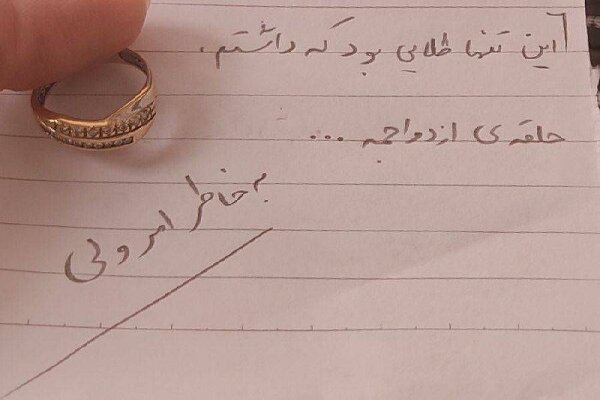 این تنها طلایی بود که داشتم.
حلقه‌ی ازدواجمه ...
به خاطر